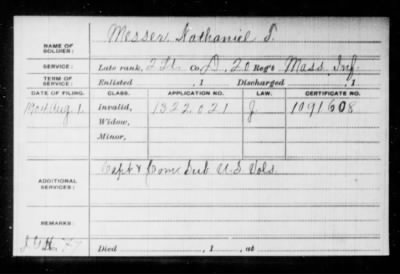 NAME OF SOLDIER: Messer, Nathaniel T.
SERVICE: Late rank, 2 Lt. Co. D, 20 Reg't Mass. Inf.
TERM OF SERVICE: Enlisted , 1 Discharged , 1
DATE OF FILING. CLASS. APPLICATION NO. LAW. CERTIFICATE NO.
1904 Aug. 1. Invalid, 1322.021 J 1091608
Widow,
Minor,
ADDITIONAL SERVICES: Capt & Com. Sub U.S. Vols.
REMARKS:
Died , 1 , at